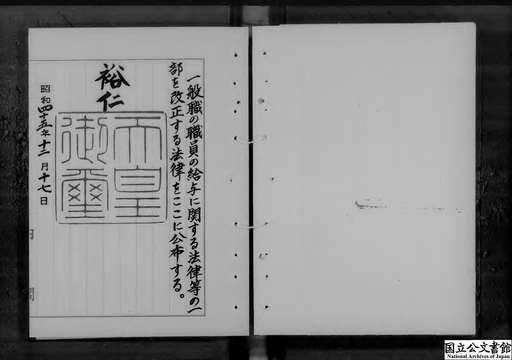 一般職の職員の給与に関する法律等の一
部を改正する法律をここに公布する。
裕仁
天皇
御璽
昭和四十五年十二月十七日
国立公文書館
National Archives of Japan